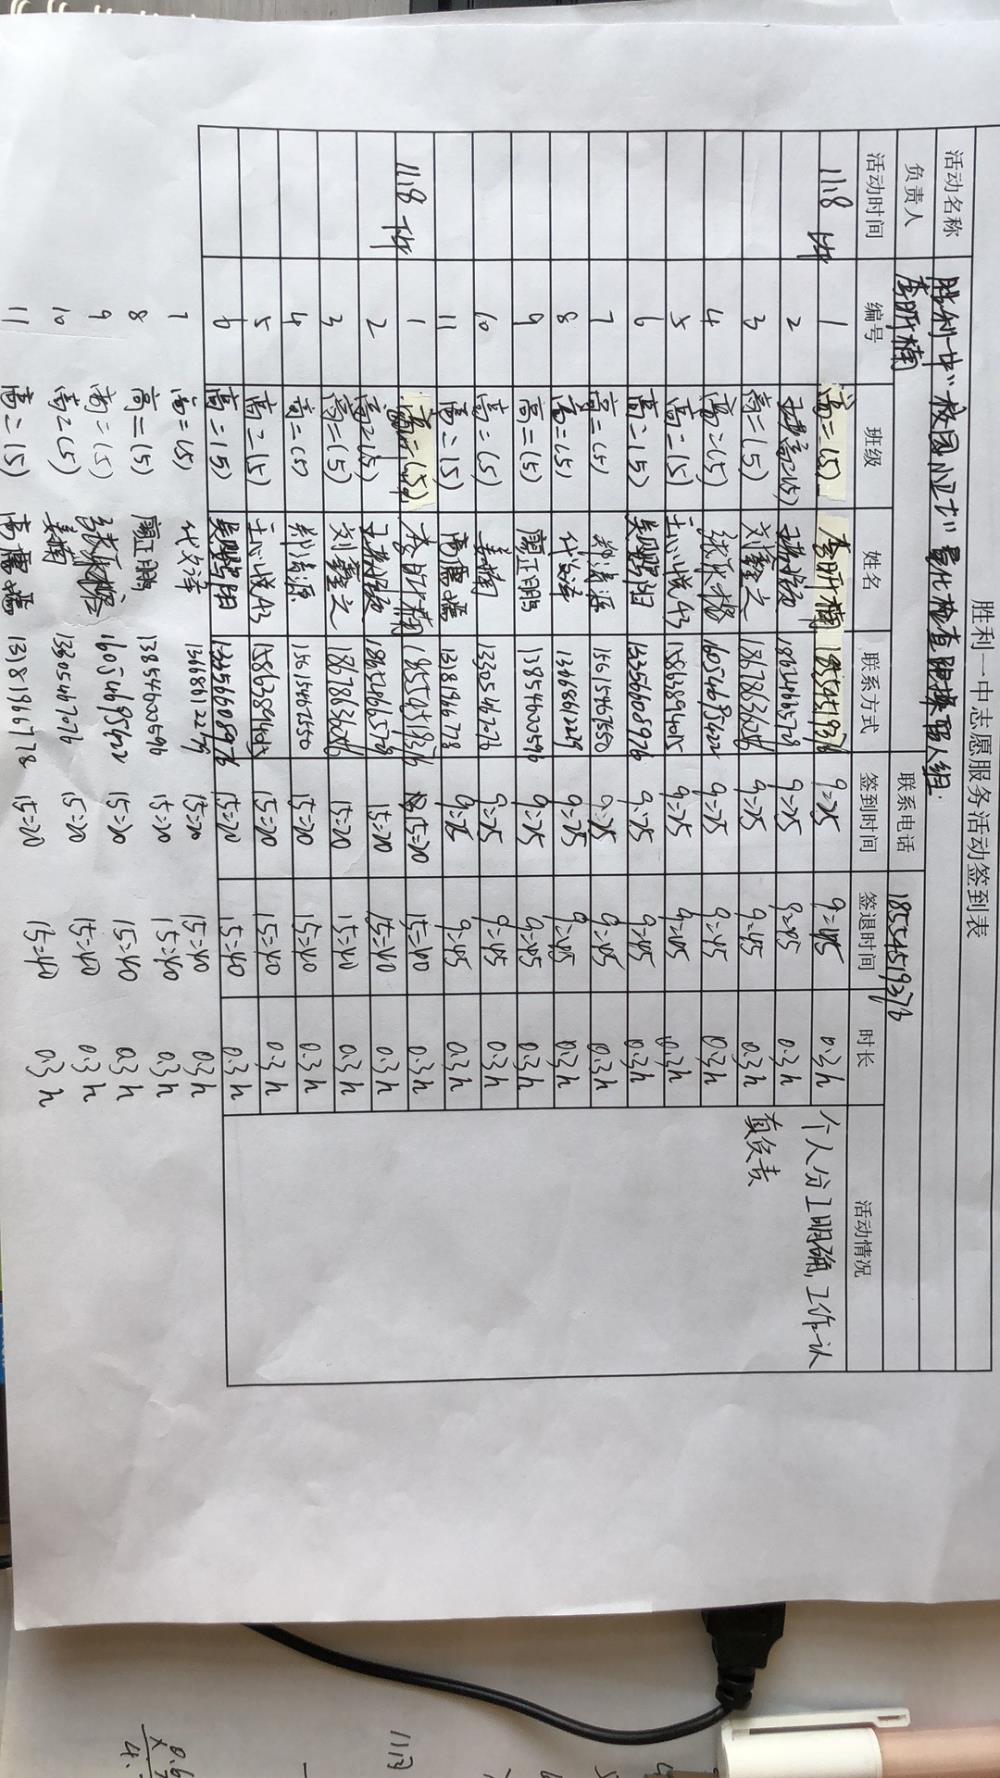 胜利一中志愿服务活动签到表
活动名称 胜利一中"校园小卫士"量化检查 组
负责人 李昕楠 联系电话 18554519376
活动时间 编号 班级 姓名 联系方式 签到时间 签退时间 时长 活动情况
11.8 1 高二(5) 李昕楠 18554519376 9:25 9:45 0.3h 个人分工明确,工作认
2 高二(5) 9:25 9:45 0.3h
3 高二(5) 刘鑫之 18678636286 9:25 9:45 0.3h 真负责
4 高二(5) 16054695622 9:25 9:45 0.3h
5 高二(5) 王心悦 15863894015 9:25 9:45 0.3h
6 高二(5) 吴鹏阳 13356608976 9:25 9:45 0.3h
7 高二(5) 郑涛源 15615465550 9:25 9:45 0.3h
8 高二(5) 代文泽 13668612229 9:25 9:45 0.3h
9 高二(5) 顾正鹏 13854600596 9:25 9:45 0.3h
10 高二(5) 姜楠 13305467076 9:25 9:45 0.3h
11 高二(5) 高震 13181966778 9:25 9:45 0.3h
11.8 下午 1 高二(5) 李昕楠 18554519376 15:20 15:40 0.3h
2 高二(5) 15:20 15:40 0.3h
3 高二(5) 刘鑫之 18678636286 15:20 15:40 0.3h
4 高二(5) 郑涛源 15615465550 15:20 15:40 0.3h
5 高二(5) 王心悦 15863894015 15:20 15:40 0.3h
6 高二(5) 吴鹏阳 13356608976 15:20 15:40 0.3h
7 高二(5) 代文泽 13668612229 15:20 15:40 0.3h
8 高二(5) 顾正鹏 13854600596 15:20 15:40 0.3h
9 高二(5) 16054695622 15:20 15:40 0.3h
10 高二(5) 姜楠 13305467076 15:20 15:40 0.3h
11 高二(5) 高震 13181966778 15:20 15:40 0.3h